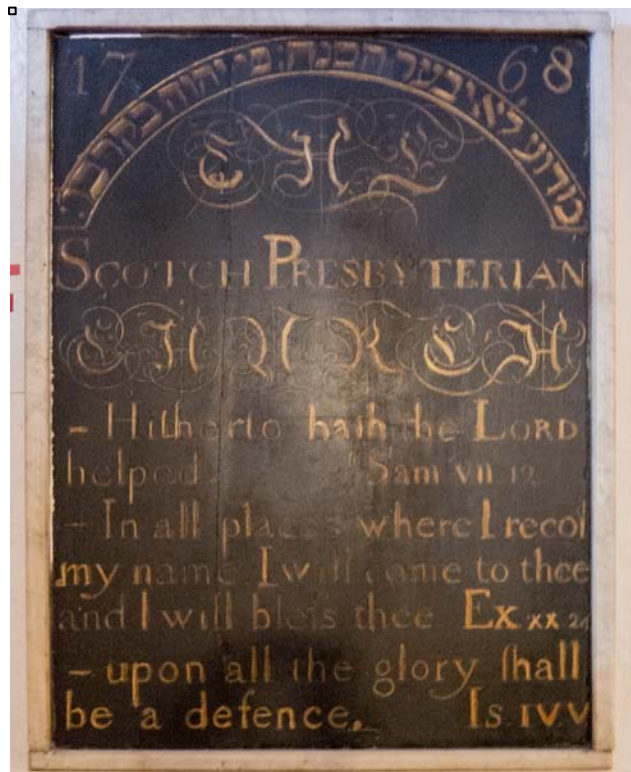 1768
מדוע לא יבער הסנה: כי יהוה בקרבו:
THE
SCOTCH PRESBYTERIAN
CHURCH
- Hitherto hath the LORD
helped. Sam VII 12
- In all places where I recor
my name I will come to thee
and I will bleſs thee Ex xx 24
- upon all the glory ſhall
be a defence. Is. IV.V